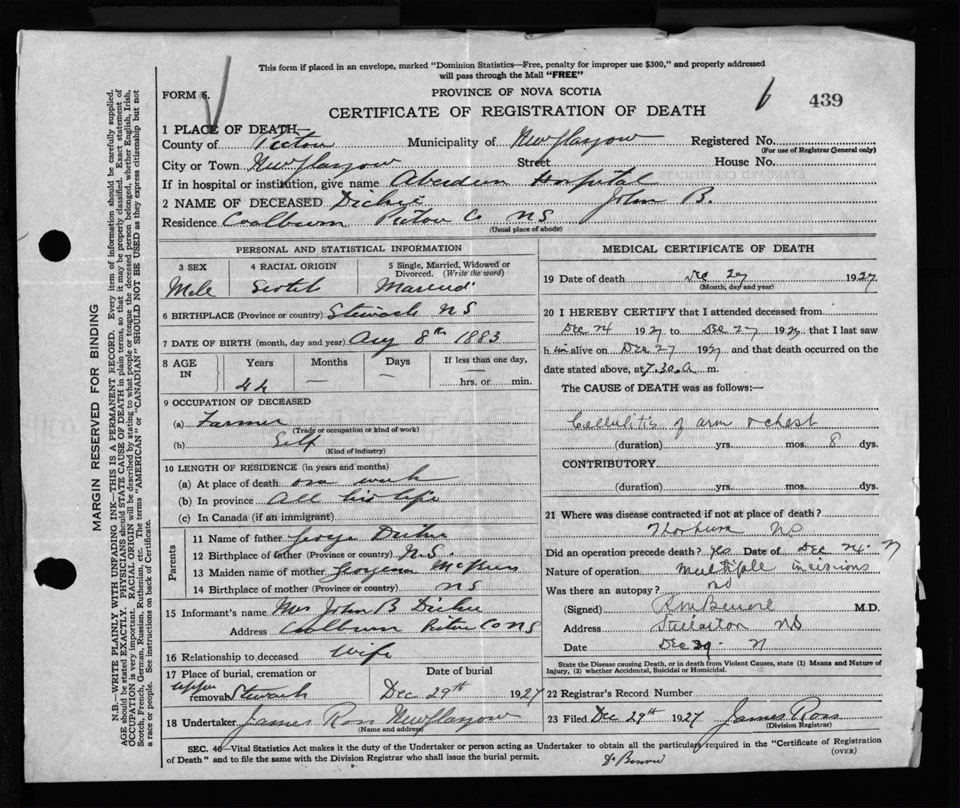 This form if placed in an envelope, marked "Dominion Statistics—Free, penalty for improper use $300," and properly addressed
will pass through the Mail "FREE"
FORM 6.
PROVINCE OF NOVA SCOTIA
CERTIFICATE OF REGISTRATION OF DEATH
439
1 PLACE OF DEATH—
County of Pictou Municipality of New Glasgow Registered No.
(For use of Registrar General only)
City or Town New Glasgow Street House No.
If in hospital or institution, give name Aberdeen Hospital
2 NAME OF DECEASED Dickie John B.
Residence Coalburn Pictou Co NS
(Usual place of abode)
PERSONAL AND STATISTICAL INFORMATION
3 SEX 4 RACIAL ORIGIN 5 Single, Married, Widowed or
Divorced. (Write the word)
Male Scotch Married
6 BIRTHPLACE (Province or country) Stewiack NS
7 DATE OF BIRTH (month, day and year) Aug 8th 1883
8 AGE IN Years Months Days If less than one day,
44 — — hrs. or min.
9 OCCUPATION OF DECEASED
(a) Farmer
(Trade or occupation or kind of work)
(b) Self
(Kind of industry)
10 LENGTH OF RESIDENCE (in years and months)
(a) At place of death one week
(b) In province All his life
(c) In Canada (if an immigrant)
Parents
11 Name of father George Dickie
12 Birthplace of father (Province or country) N.S.
13 Maiden name of mother
14 Birthplace of mother (Province or country) NS
15 Informant's name Mrs John B Dickie
Address Coalburn Pictou Co NS
16 Relationship to deceased Wife
17 Place of burial, cremation or
removal Upper Stewiack
Date of burial
Dec 29th 1927
18 Undertaker James Ross New Glasgow
(Name and address)
MEDICAL CERTIFICATE OF DEATH
19 Date of death Dec 27 1927
(Month, day and year)
20 I HEREBY CERTIFY that I attended deceased from
Dec 24 1927 to Dec 27 1927, that I last saw
h im alive on Dec 27 1927 and that death occurred on the
date stated above, at 7.30 a m.
The CAUSE of DEATH was as follows:—
Cellulitis of arm & chest
(duration) yrs. mos. 8 dys.
CONTRIBUTORY
(duration) yrs. mos. dys.
21 Where was disease contracted if not at place of death?
Thorburn NS
Did an operation precede death? yes Date of Dec 24. 27
Nature of operation Multiple incisions
Was there an autopsy? no
(Signed) M.D.
Address Stellarton NS
Date Dec 29 - 27
State the Disease causing Death, or in death from Violent Causes, state (1) Means and Nature of
Injury, (2) whether Accidental, Suicidal or Homicidal.
22 Registrar's Record Number
23 Filed Dec 29th 1927 James Ross
(Division Registrar)
SEC. 40—Vital Statistics Act makes it the duty of the Undertaker or person acting as Undertaker to obtain all the particulars required in the "Certificate of Registration
of Death" and to file the same with the Division Registrar who shall issue the burial permit.
(OVER)
MARGIN RESERVED FOR BINDING
N.B.—WRITE PLAINLY WITH UNFADING INK—THIS IS A PERMANENT RECORD. Every item of information should be carefully supplied.
AGE should be stated EXACTLY. PHYSICIANS should STATE CAUSE OF DEATH in plain terms, so that it may be properly classified. Exact statement of
OCCUPATION is very important. RACIAL ORIGIN will be described by stating to what people or tongue the deceased person belonged, whether English, Irish,
Scotch, French, German, Russian, Ruthenian, etc. The terms "AMERICAN" or "CANADIAN" SHOULD NOT BE USED as they express citizenship but not
a race or people. See instructions on back of Certificate.